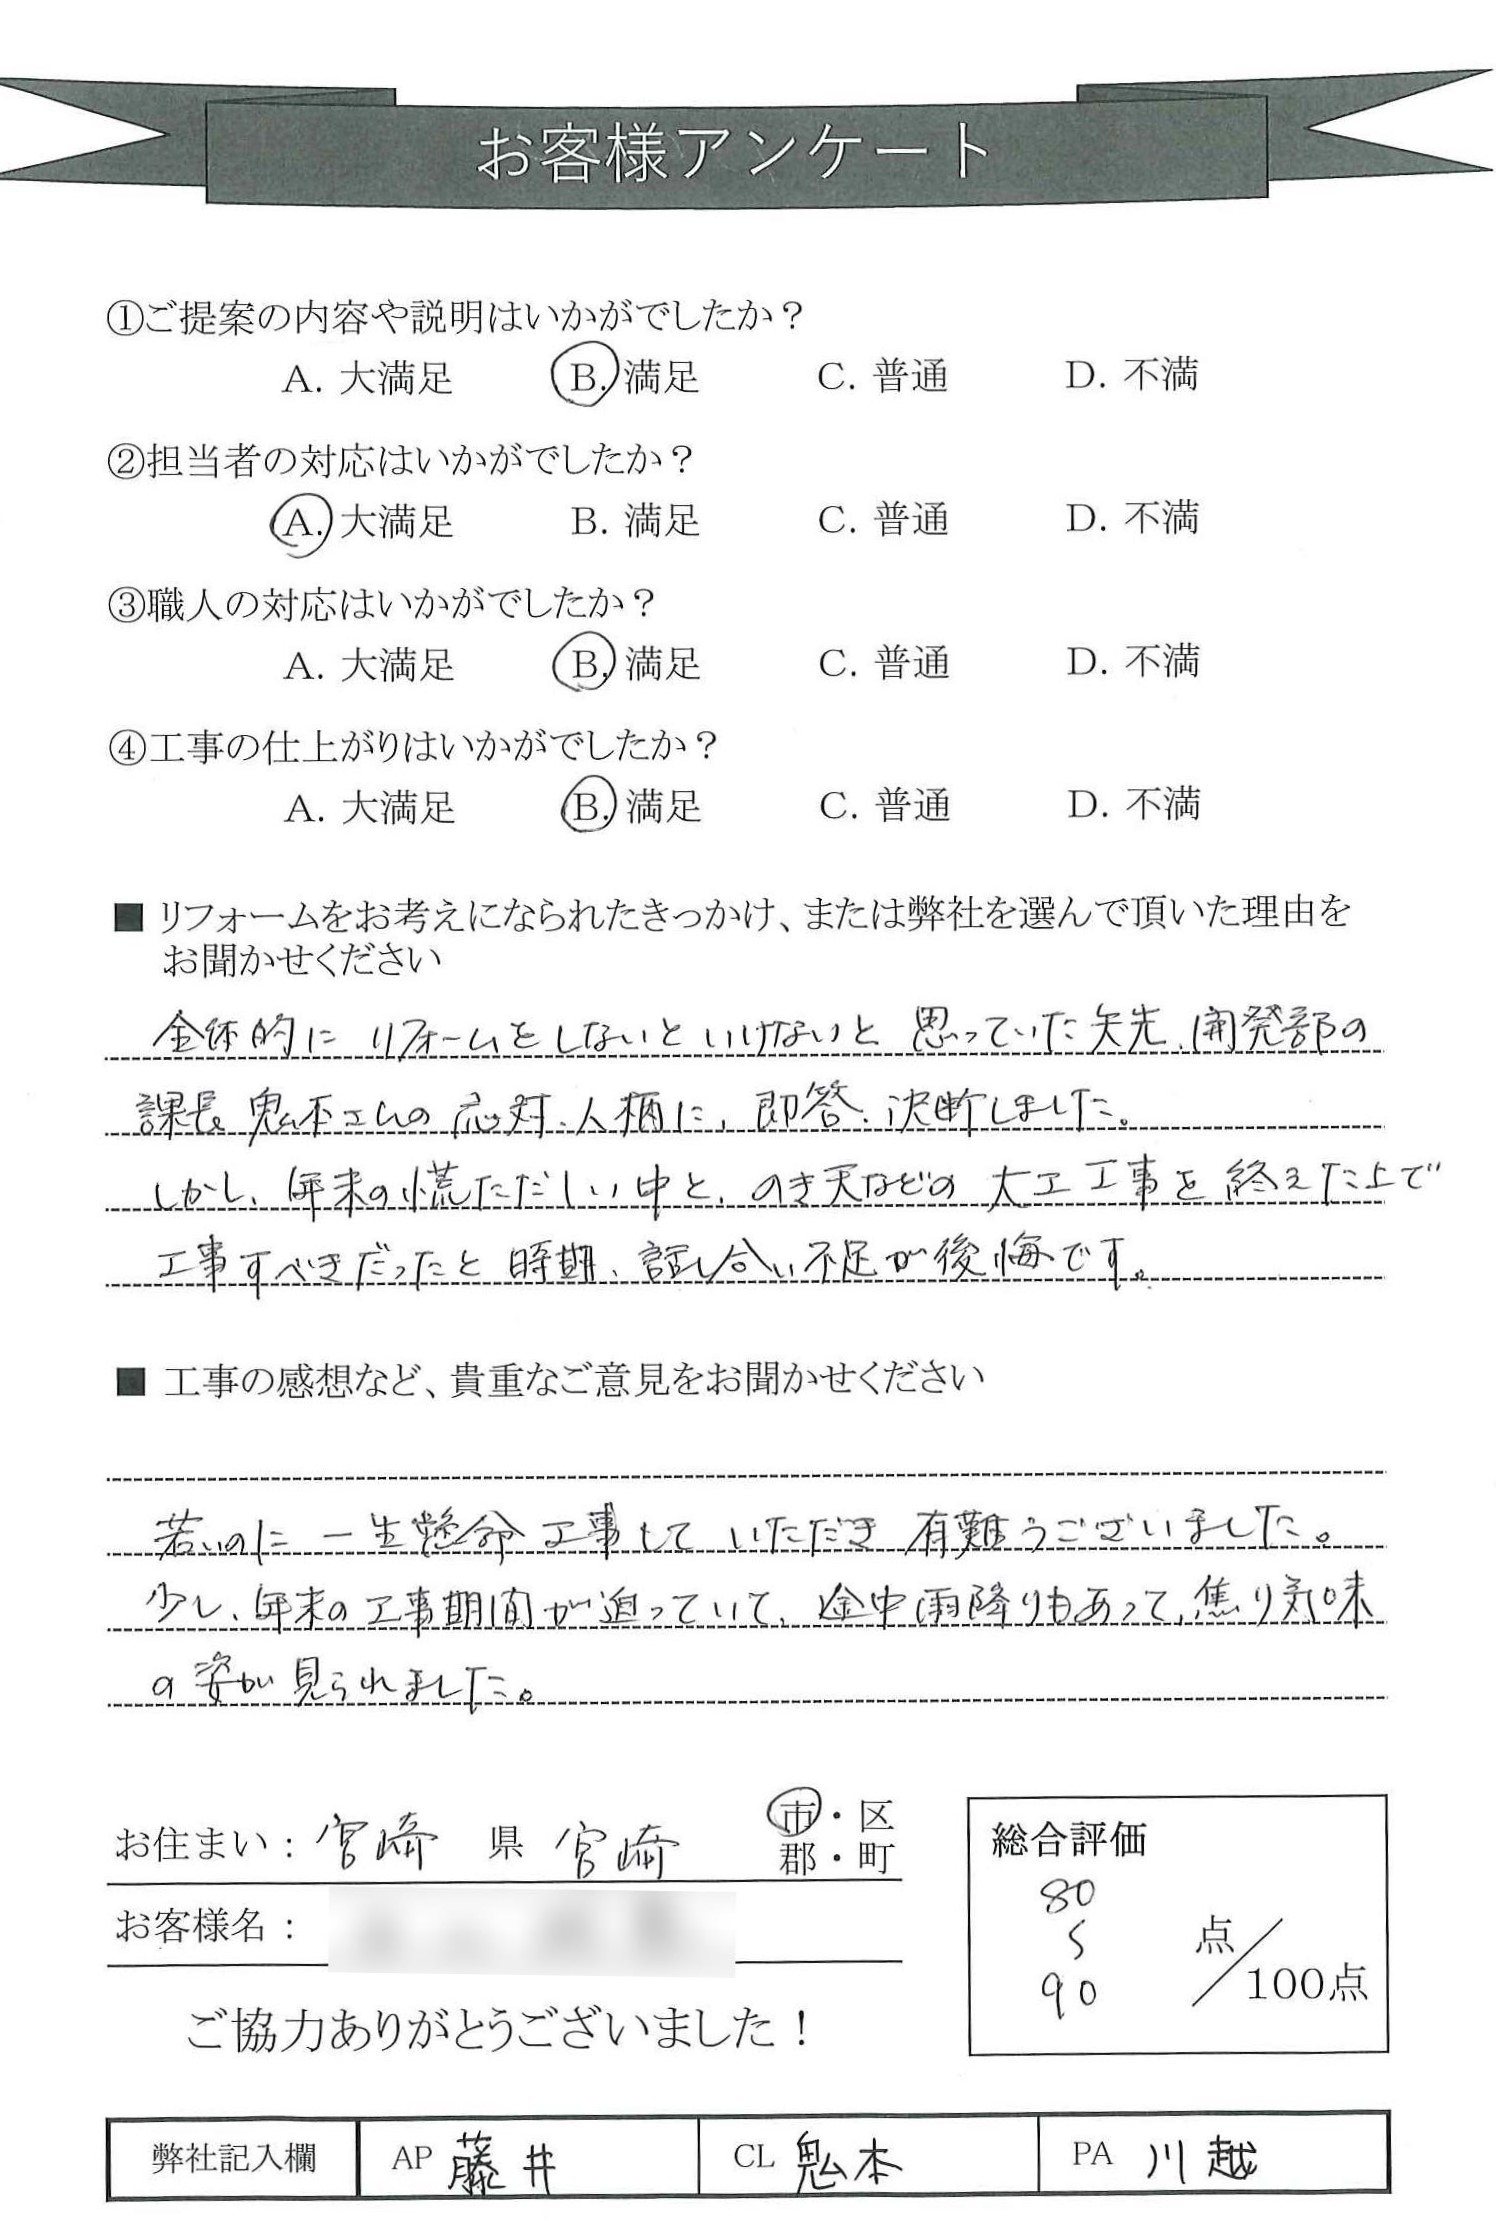 お客様アンケート
①ご提案の内容や説明はいかがでしたか？
A. 大満足 B. 満足 C. 普通 D. 不満
②担当者の対応はいかがでしたか？
A. 大満足 B. 満足 C. 普通 D. 不満
③職人の対応はいかがでしたか？
A. 大満足 B. 満足 C. 普通 D. 不満
④工事の仕上がりはいかがでしたか？
A. 大満足 B. 満足 C. 普通 D. 不満
■ リフォームをお考えになられたきっかけ、または弊社を選んで頂いた理由を
お聞かせください
全体的に リフォームをしないといけないと 思っていた矢先、開発部の
課長 鬼本さんの 応対、人柄に、即答、決断しました。
しかし、年末の慌ただしい中と、のき天などの 大工工事を 終えた上で
工事すべきだったと 時期、話し合い不足が後悔です。
■ 工事の感想など、貴重なご意見をお聞かせください
若いのに 一生懸命 工事して いただき 有難うございました。
少し、年末の工事期間が迫っていて、途中雨降りもあって、焦り気味
の姿が見られました。
お住まい： 宮崎 県 宮崎 市・区
郡・町
お客様名：
総合評価
80
〜
90
点／100点
ご協力ありがとうございました！
弊社記入欄 AP 藤井 CL 鬼本 PA 川越